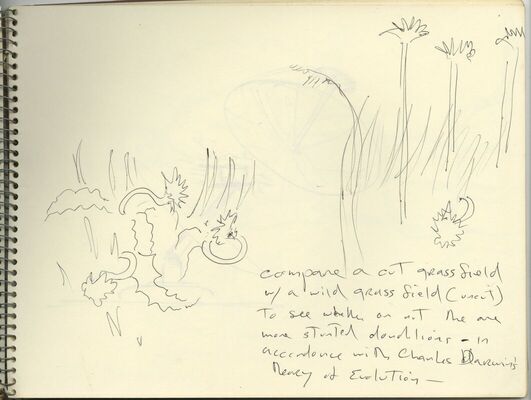 compare a cut grass field
w/ a wild grass field (uncut)
To see whether or not the are
more stunted dandlions - in
accordance with Charles Darwin's
Theory of Evolution —